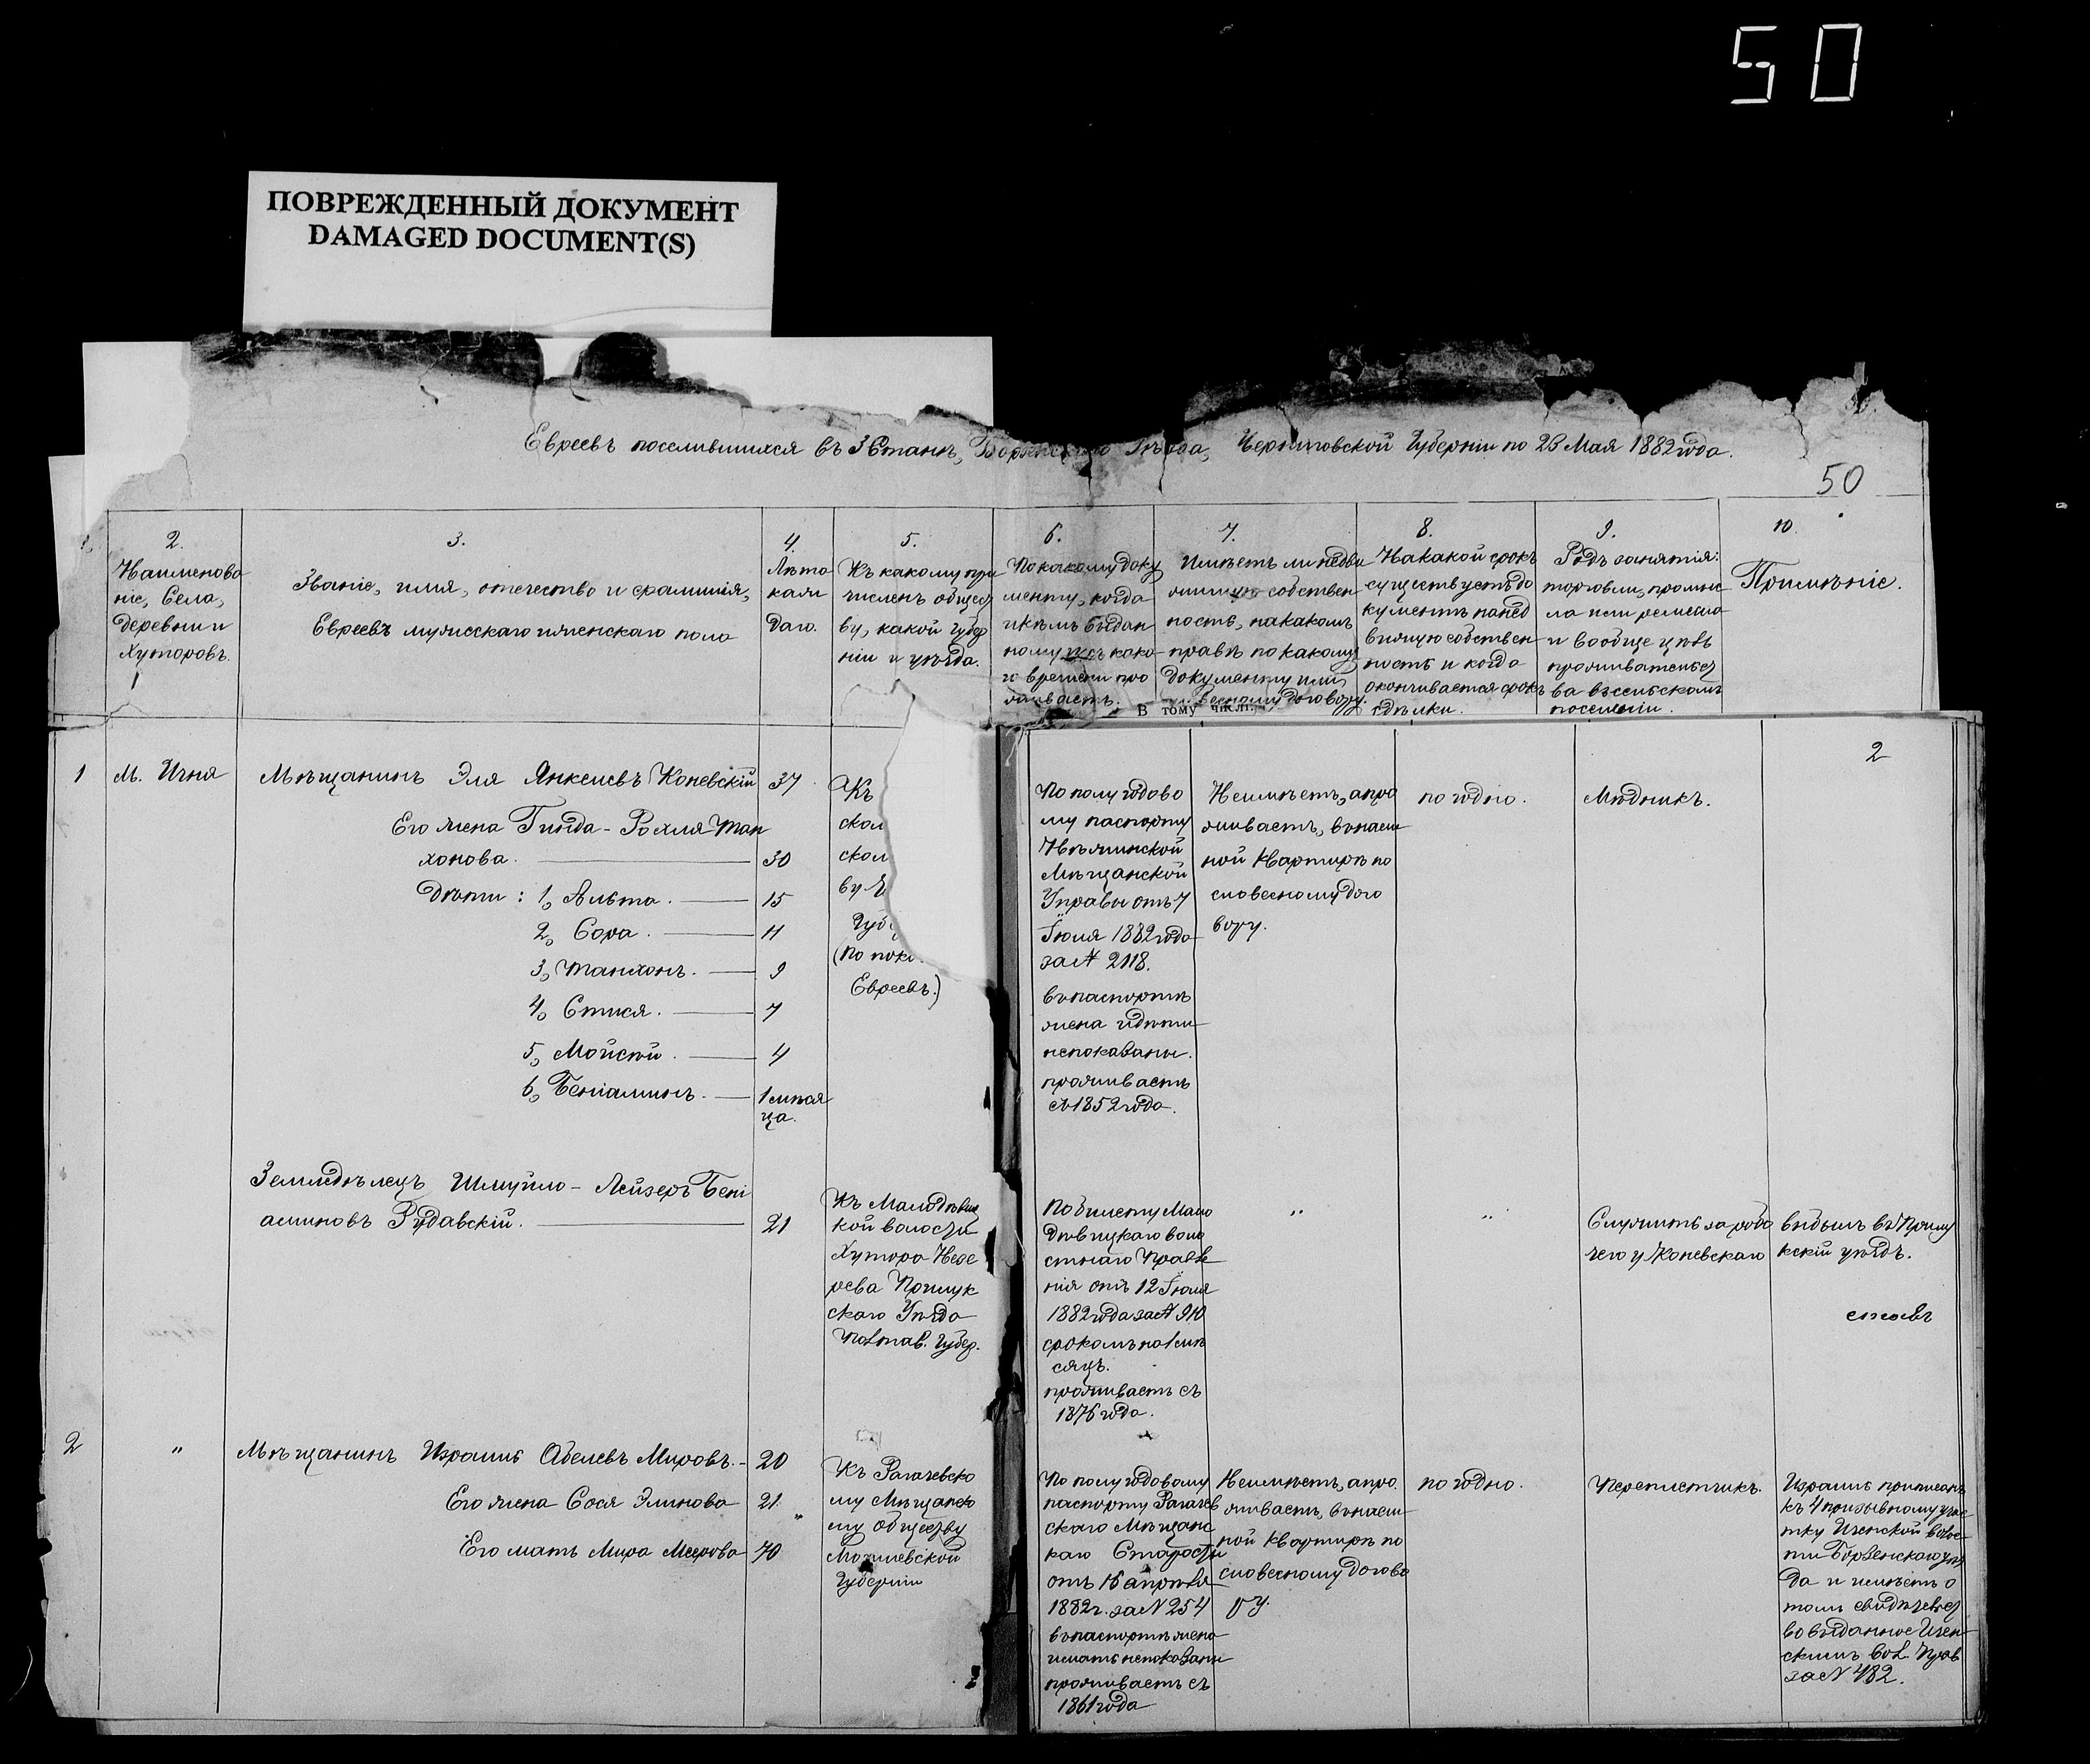 50
ПОВРЕЖДЕННЫЙ ДОКУМЕНТ
DAMAGED DOCUMENT(S)
Евреевъ поселившихся въ 3 Станѣ, Уѣзда, Черниговской Губерніи по 23 Мая 1882 года.
50
2.
Наименова
ніе, Села,
деревни и
Хуторовъ.
3.
Званіе, имя, отечество и фамилія,
Евреевъ мужескаго и женскаго пола
4.
Лѣта
каж
даго.
5.
Къ какому при
численъ общест
ву, какой Губер
ніи и уѣзда.
6.
По какому доку
менту, когда
и кѣмъ выдан
ному и съ како
го времени про
живаетъ.
7.
Имѣетъ ли недви
жимую собствен
ность, на какомъ
правѣ по какому
документу или
словесному договору.
В тому числѣ
8.
На какой срокъ
существуетъ до
кументъ на нед
вижимую собствен
ность и когда
оканчивается срокъ
сдѣлки.
9.
Родъ занятія:
торговли, промыс
ла или ремесла
и вообще цѣль
проживательст
ва въ сельскомъ
поселеніи.
10.
Примѣніе.
2
1
М. Ичня
Мѣщанинъ Эля Янкелевъ Каневскій 37
Его жена Гинда - Рохля Тан
хонова. 30
Дѣти: 1, Альта. 15
2, Сора. 11
3, Танхонъ. 9
4, Стися. 7
5, Мойсѣй. 4
6, Беніаминъ. 1 мѣся
ца.
Къ
ском
ском
ву
Губ
(по пока
Евреевъ.)
По полугодово
му паспорту
Нѣжинской
Мѣщанской
Управы отъ 7
Іюля 1882 года
за № 2118.
въ паспортѣ
жена и дѣти
непоказаны.
проживаетъ
съ 1852 года.
Неимѣетъ, а про
живаетъ, въ наем
ной квартирѣ по
словесному дого
вору.
погодно.
Мѣдникъ.
Земледѣлецъ Шмуйло - Лейзеръ Бені
аминовъ Рудавскій. 21
Къ Малодѣвиц
кой волости
Хутора
Прилук
скаго Уѣзда
Полтав. Губер.
По билету Мало
дѣвицкаго воло
стнаго Правле
нія отъ 12 Іюля
1882 года за № 910
срокомъ на 1 мѣ
сяцъ.
проживаетъ съ
1876 года.
"
"
Служитъ за рабо
чего у Каневскаго
выбылъ въ Прилу
кскій уѣздъ.
2
"
Мѣщанинъ Израиль Абелевъ Мировъ. 20
Его жена Сося Элинова 21
Его мать Мира Меерова 70
Къ Рагачевско
му Мѣщанско
му обществу
Могилевской
Губерніи
По полугодовому
паспорту Рагачев
скаго Мѣщанс
каго Старосты
отъ 16 апрѣля
1882 г. за № 254
въ паспортѣ жена
и мать непоказаны
проживаетъ съ
1861 года
Неимѣетъ, а про
живаетъ, въ наем
ной квартирѣ по
словесному догово
ру.
погодно.
Переплетчикъ.
Израиль приписанъ
къ 4 призывному учас
тку Иченской волос
ти Борзенскаго уѣз
да и имѣетъ о
томъ свидѣтельст
во выданное Ичен
скимъ вол. Прав
за № 482.